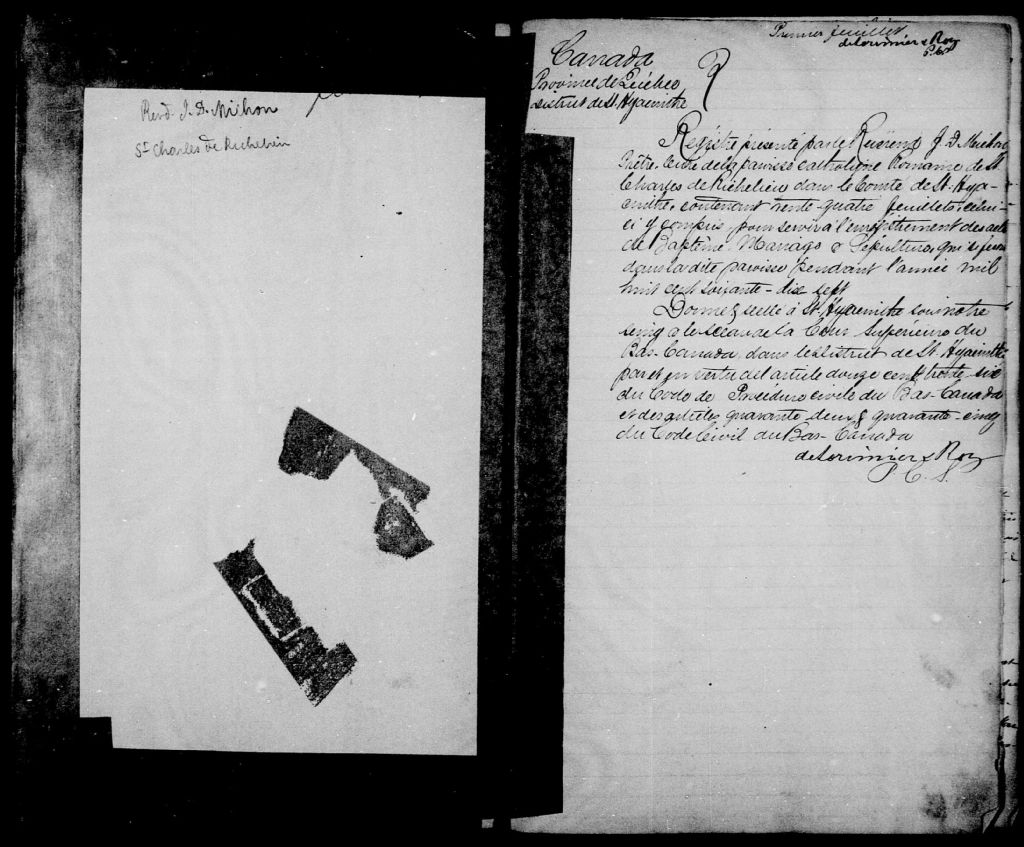 Revd J. D. Michon
St Charles de Richelieu
Premier feuillet
deLorimier & Roy
P.C.S.
Canada
Province de Québec
District de St. Hyacinthe
Régistre présenté par le Révérend J. D. Michon
Prêtre, Curé de la paroisse catholique Romaine de St.
Charles de Richelieu dans le Comté de St. Hya-
cinthe, contenant trente-quatre feuillets, celui-
ci y compris, pour servir à l'enregistrement des actes
de Baptême Mariage & Sépulture, qui se feront
dans la dite paroisse pendant l'année mil
huit cent soixante-dix sept
Donné & scellé à St. Hyacinthe sous notre
seing & le sceau de la Cour Supérieure du
Bas-Canada, dans le District de St. Hyacinthe
par et en vertu de l'article douze cent trente-six
du Code de Procédure civile du Bas-Canada
et des articles quarante deux & quarante-cinq
du Code Civil du Bas-Canada
deLorimier & Roy
P. C. S.